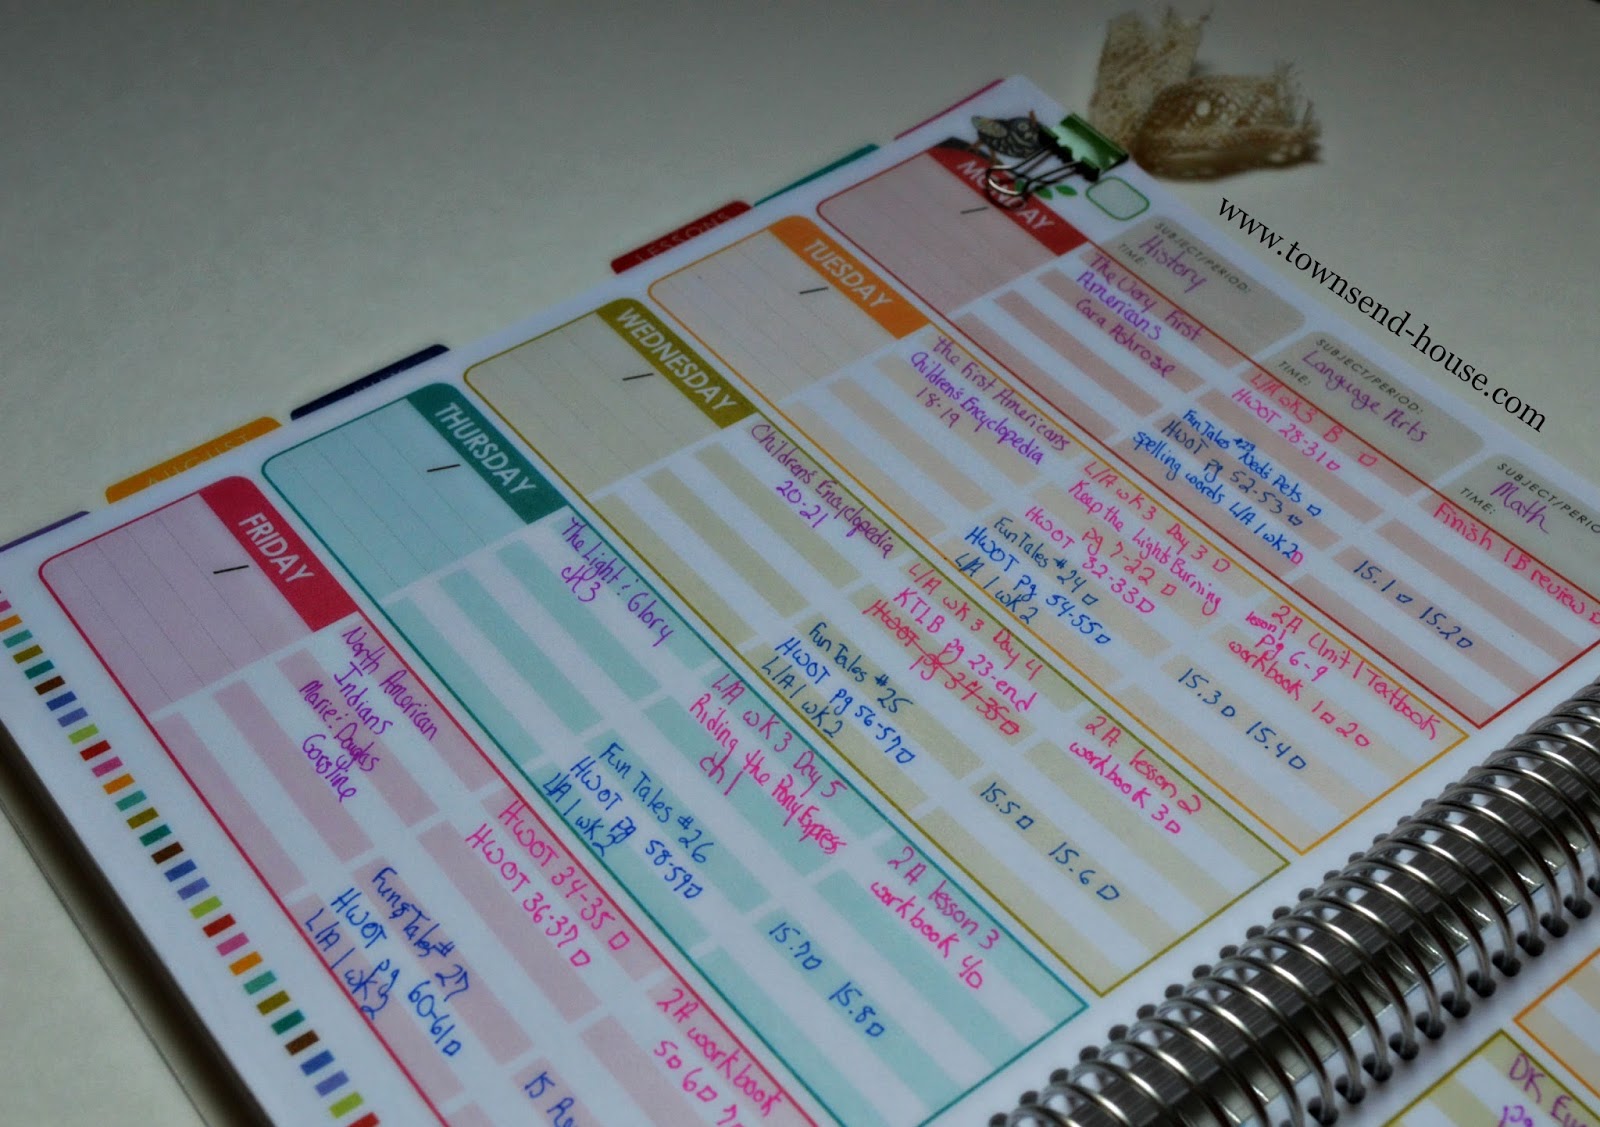 www.townsend-house.com
LESSONS
AUGUST
SUBJECT/PERIOD:
History
TIME:
SUBJECT/PERIOD:
Language Arts
TIME:
SUBJECT/PERIO
Math
TIME:
MONDAY
/
The Very First
Americans
Cara Ashrose
L/A wk 3 B
HWOT 28-31
Fun Tales #23 Ned's Pets
HWOT pg 52-53
spelling words L/A 1 wk 2
Finish 1B review
15.1 15.2
TUESDAY
/
the First Americans
Children's Encyclopedia
18-19
L/A wk 3 Day 3
Keep the Light Burning
pg 7-22
HWOT 32-33
Fun Tales #24
HWOT pg 54-55
L/A 1 wk 2
2A Unit 1 Textbook
lesson 1
pg 6-9
workbook 1 2
15.3 15.4
WEDNESDAY
/
Children's Encyclopedia
20-21
L/A wk 3 Day 4
KTLB pg 23-end
HWOT pg 34-35
Fun Tales #25
HWOT pg 56-57
L/A 1 wk 2
2A lesson 2
workbook 3
15.5 15.6
THURSDAY
/
The Light & Glory
ch 3
L/A wk 3 Day 5
Riding the Pony Express
ch 1
Fun Tales #26
HWOT pg 58-59
L/A 1 wk 2
2A lesson 3
workbook 4
15.7 15.8
FRIDAY
/
North American
Indians
Marie & Douglas
Gorsline
HWOT 34-35
HWOT 36-37
Fun Tales #27
HWOT pg 60-61
L/A 1 wk 2
2A workbook
5 6 7
15 Re
DK Eu
pg